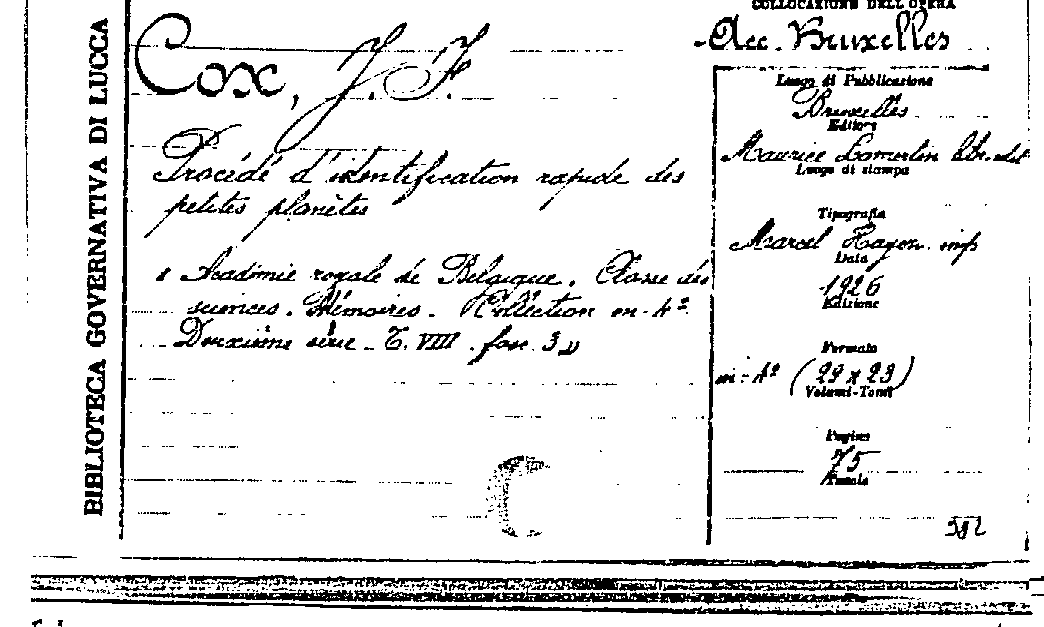 BIBLIOTECA GOVERNATIVA DI LUCCA
Cox, J. F.
Procédé d'identification rapide des
petites planètes
Académie royale de Belgique. Classe des
sciences. Mémoires. Collection in-4º
Deuxième série. T. VIII. fasc. 3 »
COLLOCAZIONE DELL'OPERA
Acc. Bruxelles
Luogo di Pubblicazione
Bruxelles
Editore
Maurice Lamertin libr.
Luogo di stampa
Tipografia
Marcel Hayez imp
Data
1926
Edizione
Formato
in-4º (29 x 23)
Volumi-Tomi
Pagine
75
Tavole
982